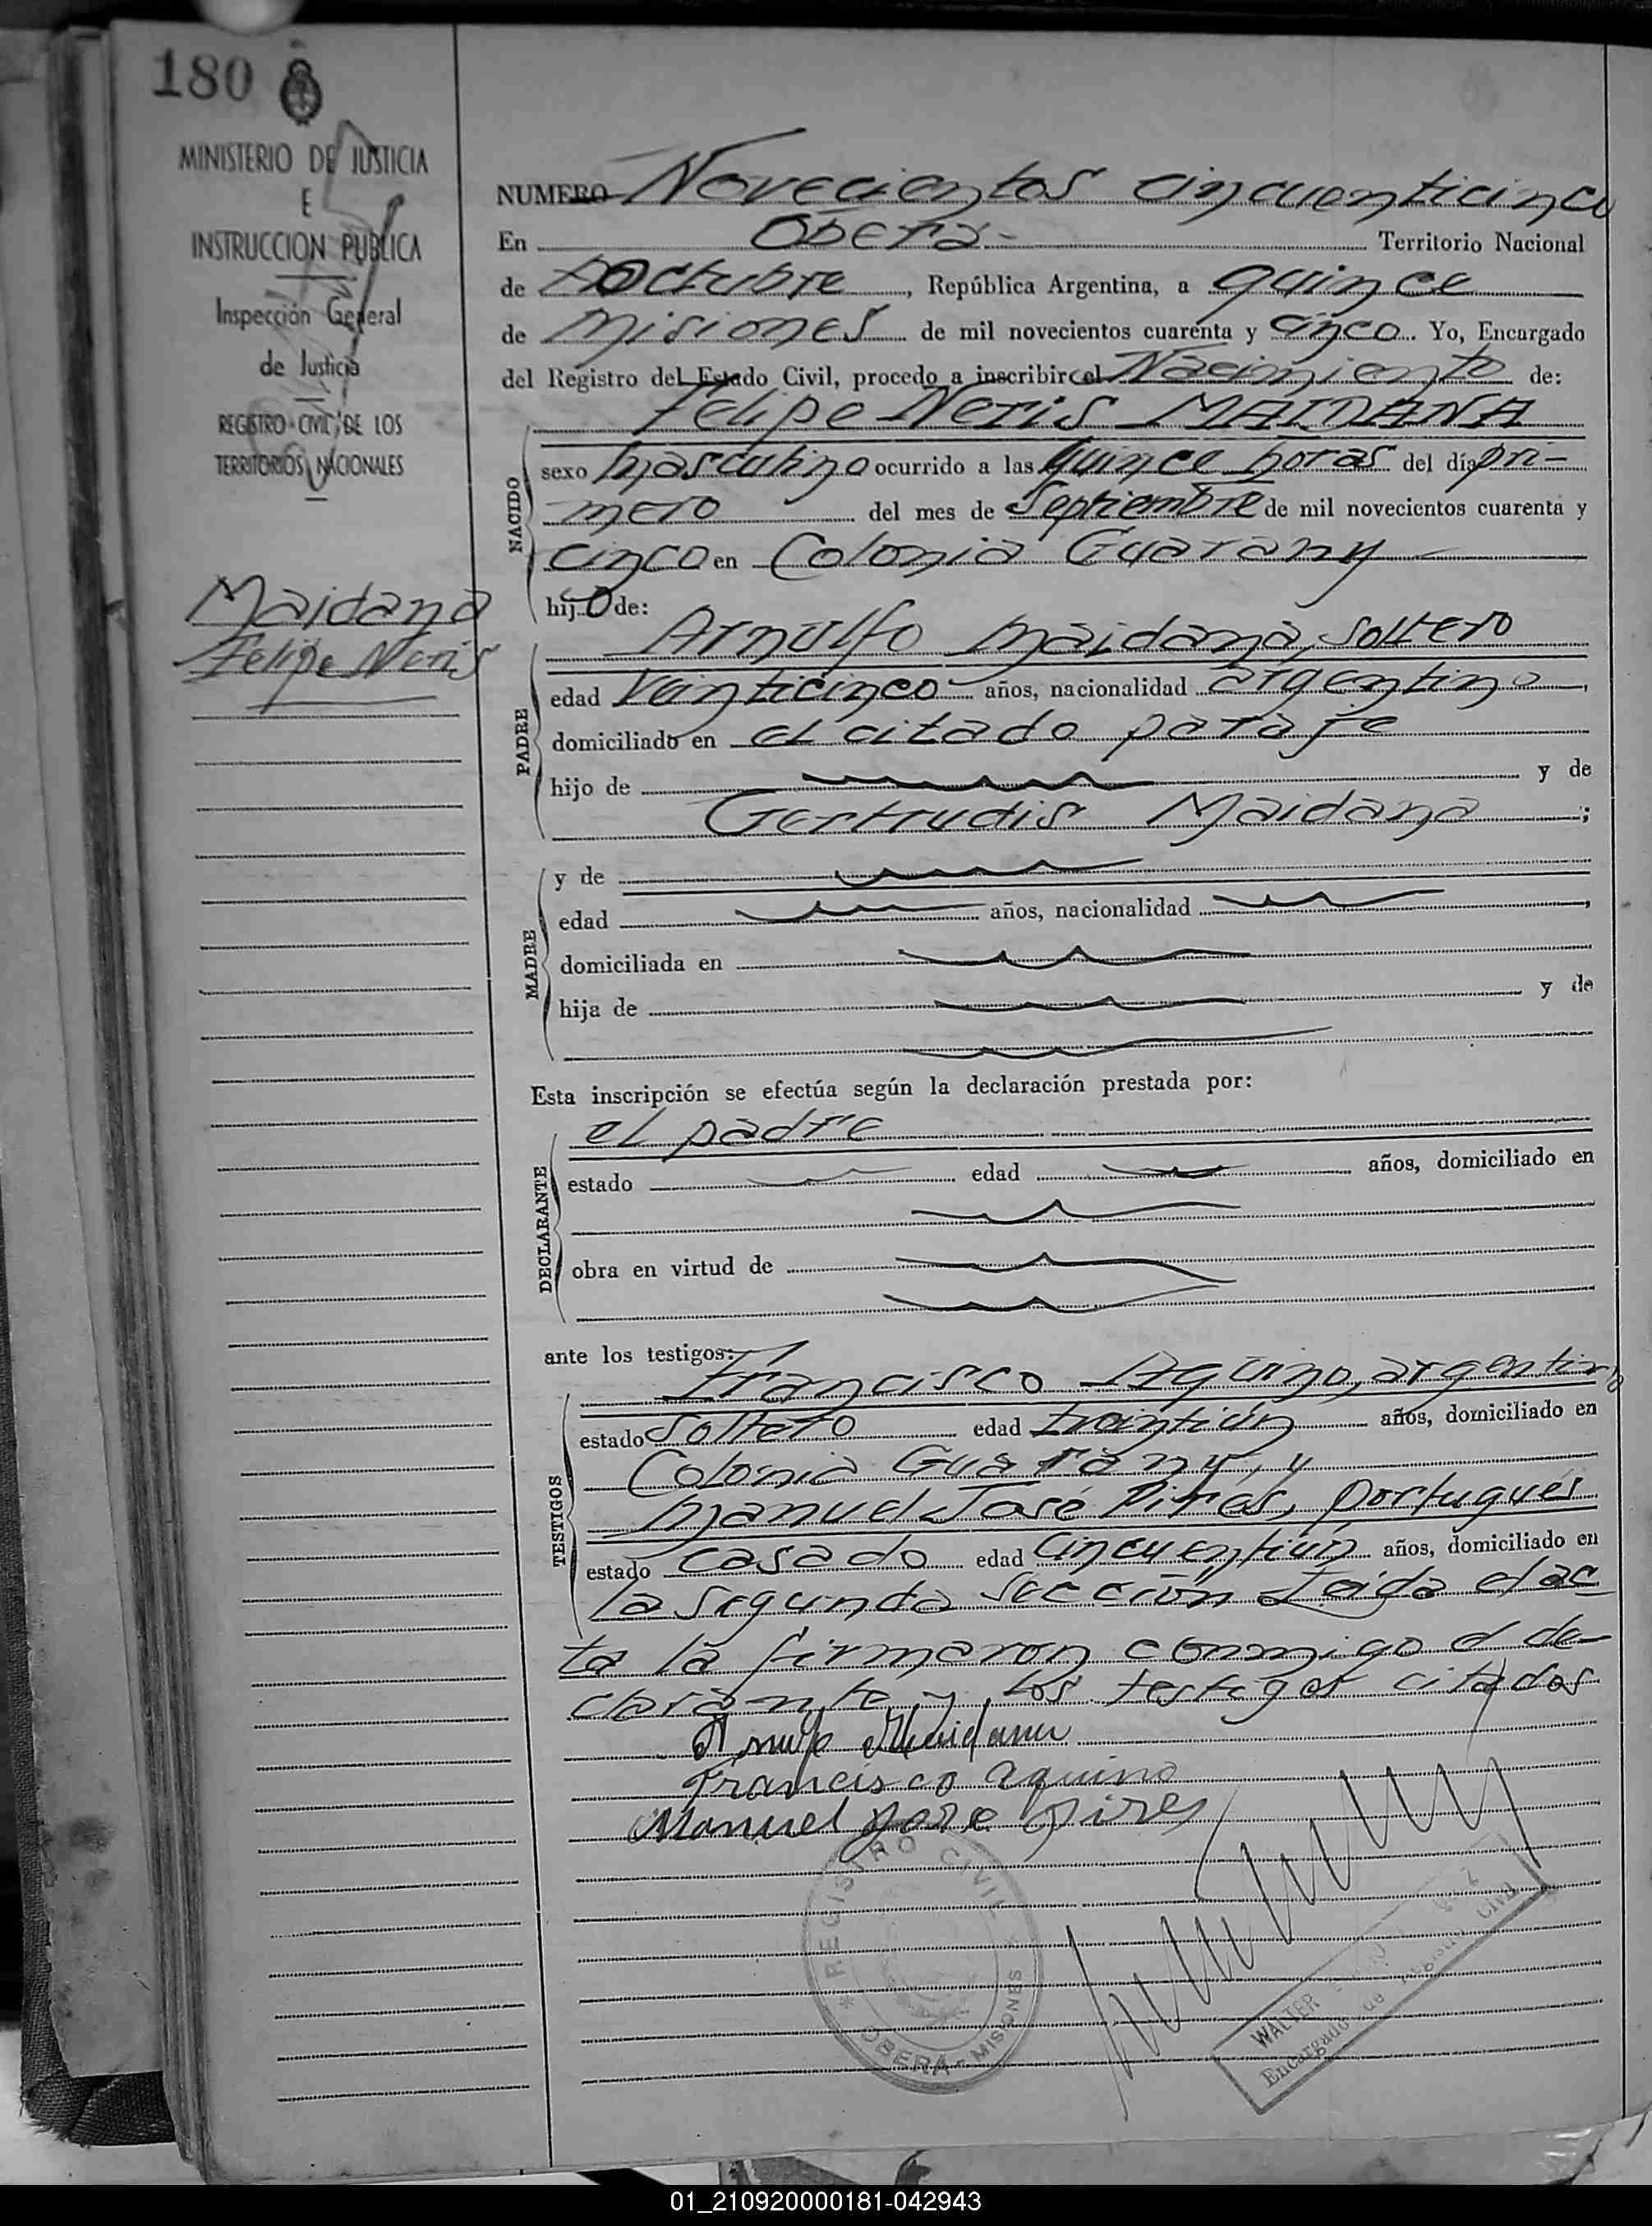 180
MINISTERIO DE JUSTICIA
E
INSTRUCCION PUBLICA
Inspección General
de Justicia
REGISTRO CIVIL DE LOS
TERRITORIOS NACIONALES
Maidana
Felipe Neris
NUMERO Novecientos cincuenticinco
En Oberá Territorio Nacional
de Octubre, República Argentina, a quince
de Misiones de mil novecientos cuarenta y cinco. Yo, Encargado
del Registro del Estado Civil, procedo a inscribir el Nacimiento de:
Felipe Neris MAIDANA
NACIDO
sexo masculino ocurrido a las quince horas del día pri-
mero del mes de Septiembre de mil novecientos cuarenta y
cinco en Colonia Guarany
hijo de:
PADRE
Arnulfo Maidana, soltero
edad veinticinco años, nacionalidad argentino,
domiciliado en el citado paraje
hijo de y de
Gertrudis Maidana ;
MADRE
y de
edad años, nacionalidad ,
domiciliada en
hija de y de
Esta inscripción se efectúa según la declaración prestada por:
DECLARANTE
el padre
estado edad años, domiciliado en
obra en virtud de
ante los testigos:
TESTIGOS
Francisco Aquino, argentino
estado soltero edad treintiún años, domiciliado en
Colonia Guarany, y
Manuel José Pires, portugués
estado casado edad cincuentiún años, domiciliado en
la segunda sección Leida el ac
ta la firmaron conmigo el de-
clarante y los testigos citados
Arnulfo Maidana
Francisco aquino
Manuel Jose Pires
* REGISTRO CIVIL *
OBERÁ - MISIONES
WALTER
Encargado de Registro Civil
01_210920000181-042943